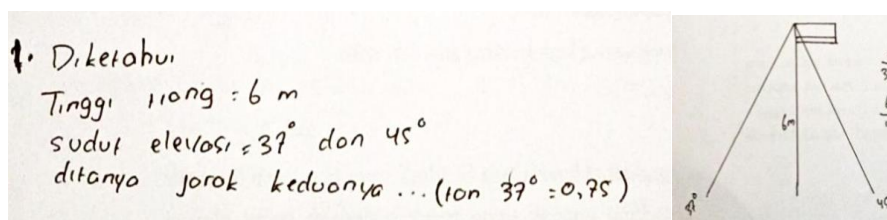 1. Diketahui
Tinggi tiang = 6 m
sudut elevasi = 37° dan 45°
ditanya jarak keduanya ... (tan 37° = 0,75)
6m